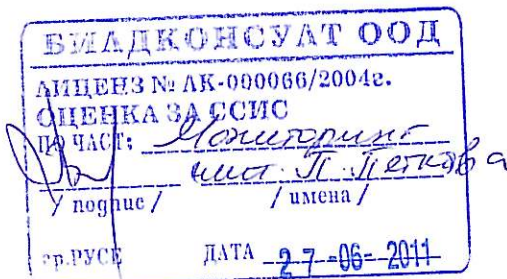 БИЛДКОНСУЛТ ООД
ЛИЦЕНЗ № ЛК-000066/2004г.
ОЦЕНКА ЗА ССИС
ПО ЧАСТ: Мониторинг
инж. П. Петкова
/ подпис / / имена /
гр.РУСЕ ДАТА 27-06-2011